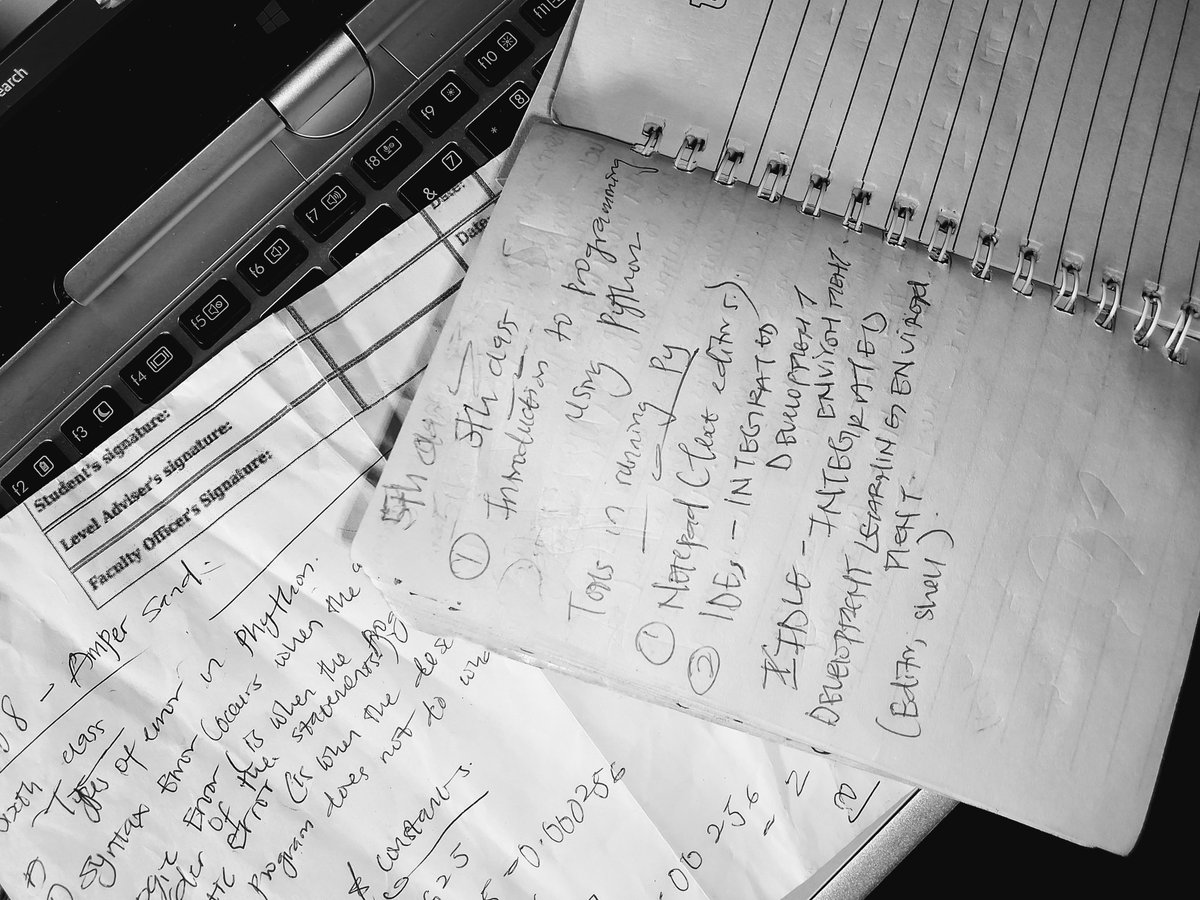 earch
f2
f3
f4
f5
f6
f7
f8
f9
f10
f11
&
7
*
8
Date:
Date
Student's signature:
Level Adviser's signature:
Faculty Officer's Signature:
5th class
5th class
Introduction to programming
Tools in using Python
running Py
① Notepad (text editors).
② IDE, - INTEGRATED
DEVELOPMENT
IDLE - INTEGRATED ENVIRONMENT.
DEVELOPMENT LEARNING ENVIRON
MENT
(Editor, shell).
8 - Amper Sand:
class
Types of error in Phython.
Syntax Error (occurs when the a
Error (is when the
of the statements prog
Error (is when the des
program does not do wha
constants.
625
= 0.000256
256
2